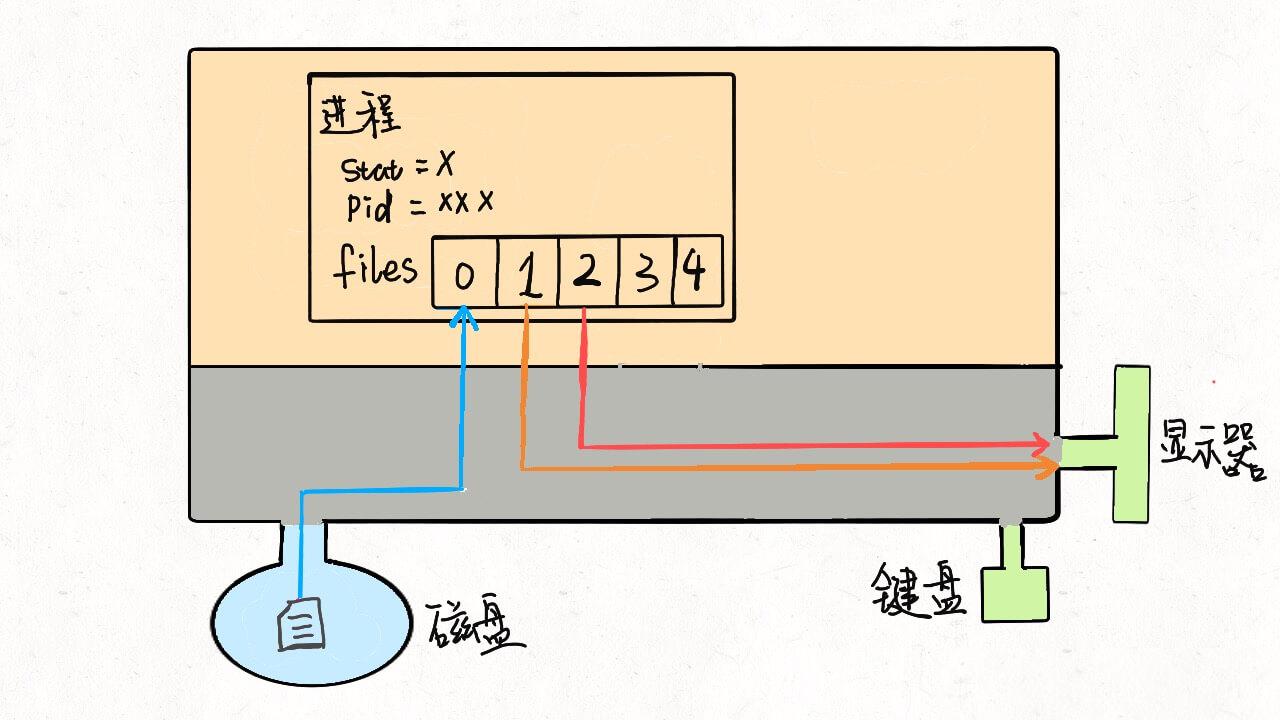 进程
Stat = X
Pid = XXX
files 0 1 2 3 4
显示器
键盘
磁盘